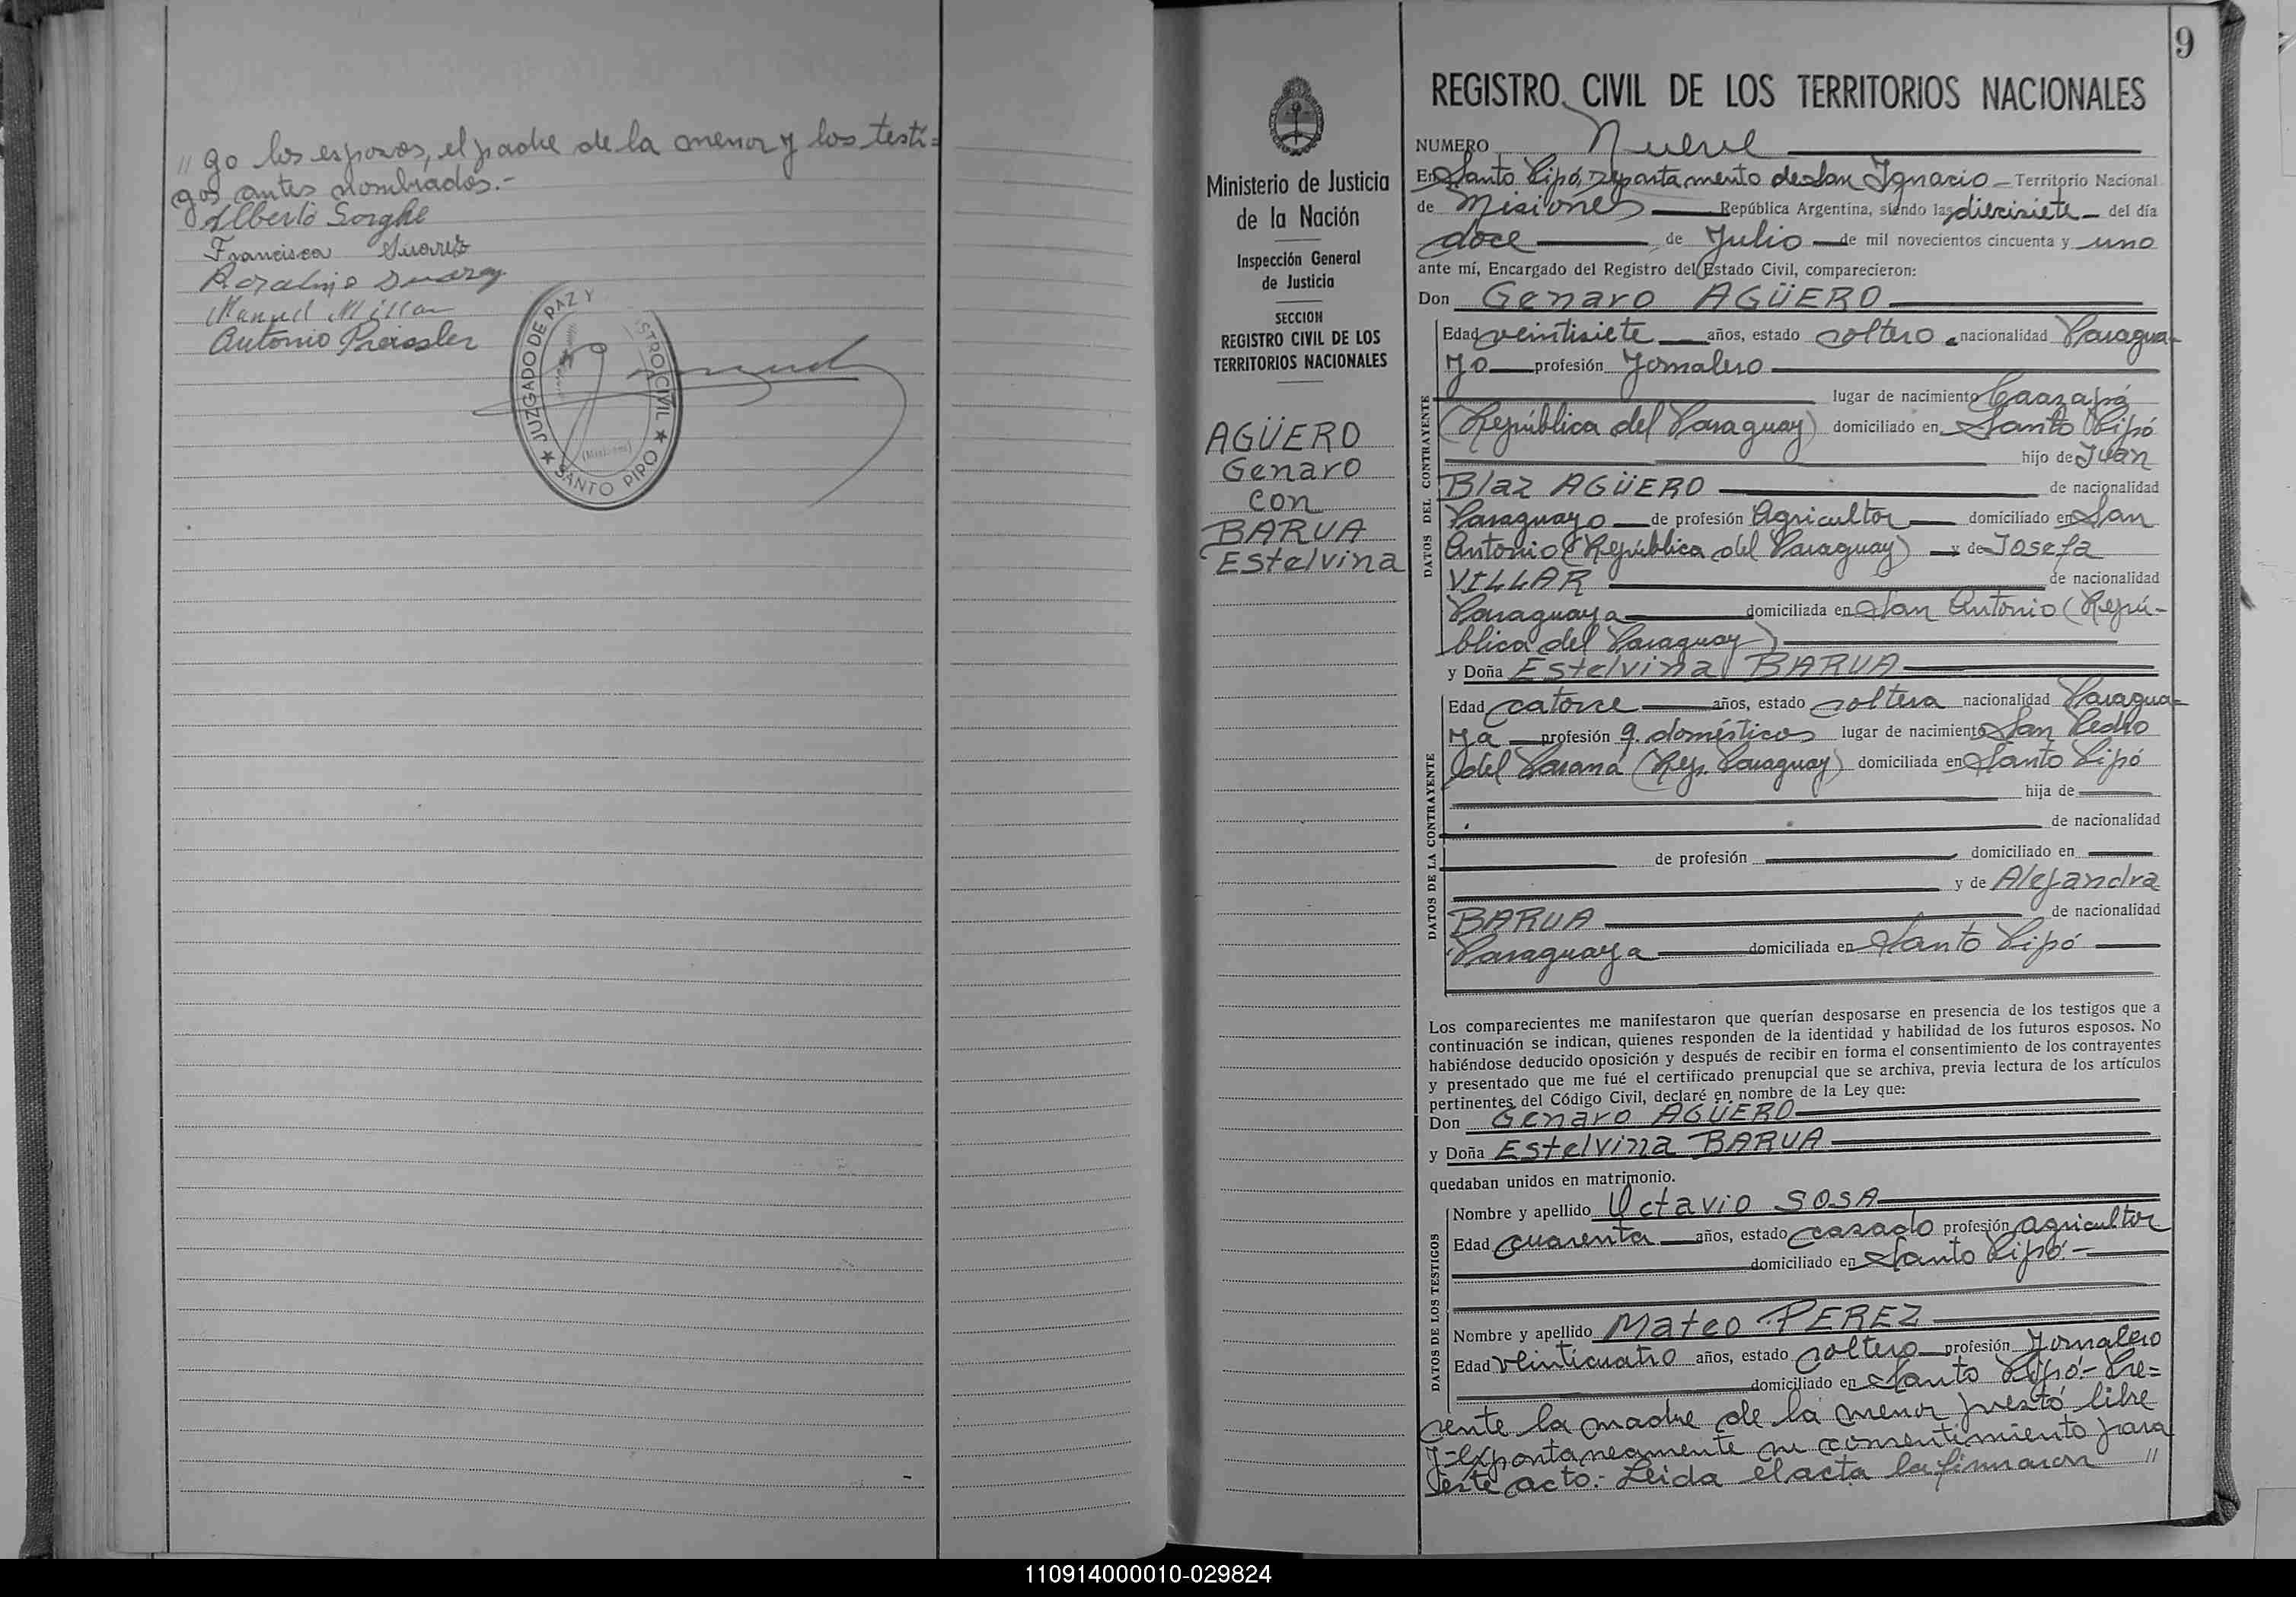 // go los esposos, el padre de la menor y los testi=
gos antes nombrados.-
Alberto Sorghe
Francisca Suarez
Rosalino Suarez
Manuel Millan
Antonio Preissler
JUZGADO DE PAZ Y
STRO CIVIL
★ SANTO PIPO ★
(Misiones)
9
Ministerio de Justicia
de la Nación
Inspección General
de Justicia
SECCION
REGISTRO CIVIL DE LOS
TERRITORIOS NACIONALES
AGÜERO
Genaro
con
BARUA
Estelvina
REGISTRO CIVIL DE LOS TERRITORIOS NACIONALES
NUMERO Nueve
En Santo Pipó, Departamento de San Ignacio - Territorio Nacional
de Misiones República Argentina, siendo las diecisiete - del día
doce de Julio de mil novecientos cincuenta y uno
ante mí, Encargado del Registro del Estado Civil, comparecieron:
Don Genaro AGÜERO
DATOS DEL CONTRAYENTE
Edad veintisiete años, estado soltero nacionalidad Paragua-
yo profesión Jornalero
lugar de nacimiento Caazapá
(República del Paraguay) domiciliado en Santo Pipó
hijo de Juan
Blaz AGÜERO de nacionalidad
Paraguayo de profesión Agricultor domiciliado en San
Antonio (República del Paraguay) y de Josefa
VILLAR de nacionalidad
Paraguaya domiciliada en San Antonio (Repú-
blica del Paraguay)
y Doña Estelvina BARUA
DATOS DE LA CONTRAYENTE
Edad catorce años, estado soltera nacionalidad Paragua=
ya profesión q. domésticos lugar de nacimiento San Pedro
del Paraná (Rep. Paraguay) domiciliada en Santo Pipó
hija de
de nacionalidad
de profesión domiciliado en
y de Alejandra
BARUA de nacionalidad
Paraguaya domiciliada en Santo Pipó
Los comparecientes me manifestaron que querían desposarse en presencia de los testigos que a
continuación se indican, quienes responden de la identidad y habilidad de los futuros esposos. No
habiéndose deducido oposición y después de recibir en forma el consentimiento de los contrayentes
y presentado que me fué el certificado prenupcial que se archiva, previa lectura de los artículos
pertinentes del Código Civil, declaré en nombre de la Ley que:
Don Genaro AGÜERO
y Doña Estelvina BARUA
quedaban unidos en matrimonio.
DATOS DE LOS TESTIGOS
Nombre y apellido Octavio SOSA
Edad cuarenta años, estado casado profesión agricultor
domiciliado en Santo Pipó.-
Nombre y apellido Mateo PEREZ
Edad veinticuatro años, estado soltero profesión Jornalero
domiciliado en Santo Pipó.- Pre=
sente la madre de la menor prestó libre
y expontaneamente su consentimiento para
este acto.- Leida el acta la firmaron //
110914000010-029824